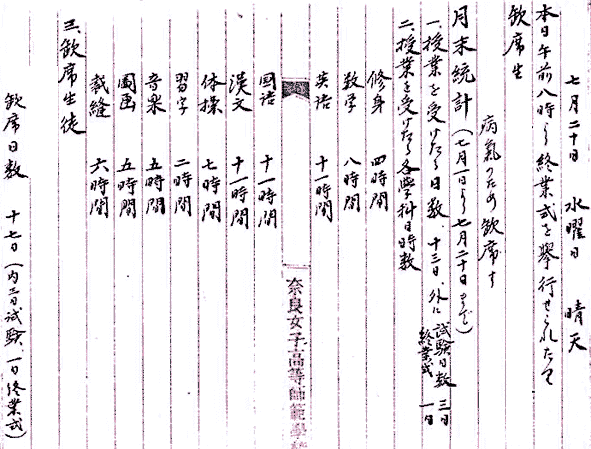 七月二十日 水曜日 晴天
本日午前八時ヨリ終業式を擧行せられたり
欽席生
病氣のため欽席す
月末統計(七月一日ヨリ七月二十日まで)
一、授業を受けたる日数、十三日、外に試驗日数 三日
終業式 一日
二、授業を受けたる各學科目時数
修身 四時間
数学 八時間
英語 十一時間
奈良女子高等師範學校
國語 十一時間
漢文 十一時間
体操 七時間
習字 二時間
音楽 五時間
圖画 五時間
裁縫 六時間
三、欽席生徒
欽席日数 十七日(内三日試驗、一日終業式)